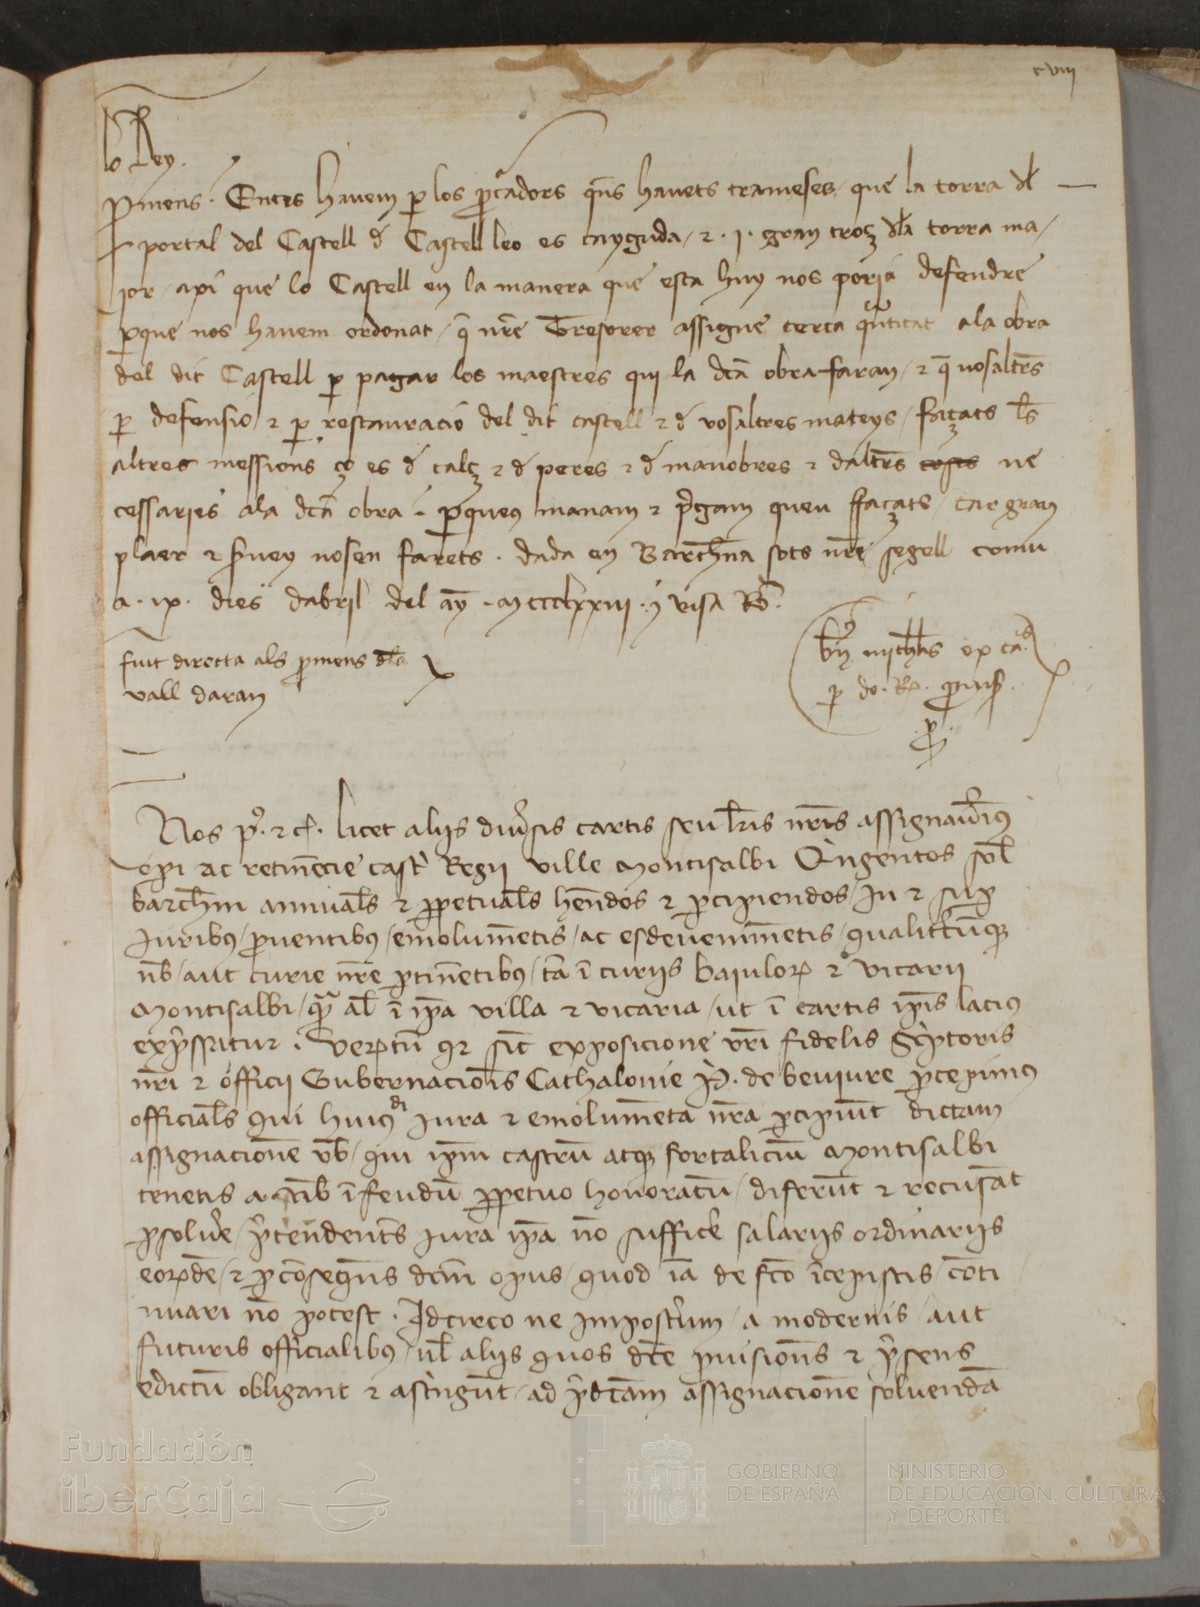 cviij
lo Rey.
Promens. Entes havem per los procadors quens havets trameses, que la torra del
portal del Castell de Castell leo es cayguda, e .i. gran troç dela torra ma-
jor, axi que lo Castell en la manera que esta huy nos poria defendre
perque nos havem ordonat, que nre Tresorer assigne certa quantitat ala obra
del dit Castell per pagar los maestres qui la dca obra faran, e que vosaltres
per defensio e per restauracio del dit castell e de vosaltres mateys, façats les
altres messions ço es de calç e de peres e de manobres e daltres coses ne
cessaries ala dca obra. Perqueus manam e pregam queu ffaçats, car gran
plaer e servey nosen farets. dada en Barchna sots nre segell comu
a .ix. dies dabril del any .Mccclxxiii. visa Ro.
fuit directa als promens dela
vall daran
bn michls ex ca
p do. R. 
p.
Nos P. etc. licet alijs diversis cartis seu lris nris assignaverimus
operi ac retinecie castri Regij ville Montisalbi Quingentos sol
barchn annuales e perpetuales hendos e percipiendos, in e super
juribus, proventibus, emolumetis, ac esdevenimetis, qualitercumque
nob, aut curie nre ptinetibus, tam in curijs baiulorum e vicarij
Montisalbi, quam al in ipa villa e vicaria, ut in cartis ipis lacius
exprssatur. Verum quia sicut exposicione vri fidelis Scriptoris
nri e officij Gubernacionis Cathalonie P. de beviure percepimus
officiales qui huiusdi jura e emolumeta nra percipiunt dictam
assignacionem vob, qui ipm castrum atque fortalicium Montisalbi
tenetis a nob in feudum perpetuo honoratum, diferunt e recusant
psolvere, pretendentes jura ipa non sufficere salarijs ordinarijs
eorumde, e per consequens dcm opus, quod iam de fco incepistis conti
nuari non potest. Idcirco ne imposterum, a modernis, aut
futuris officialibus, vel alijs quos dce provisiones e presens
edictum obligant e astringunt, ad predictam assignacionem solvendam
Fundación
iberCaja
GOBIERNO
DE ESPAÑA
MINISTERIO
DE EDUCACIÓN, CULTURA
Y DEPORTE